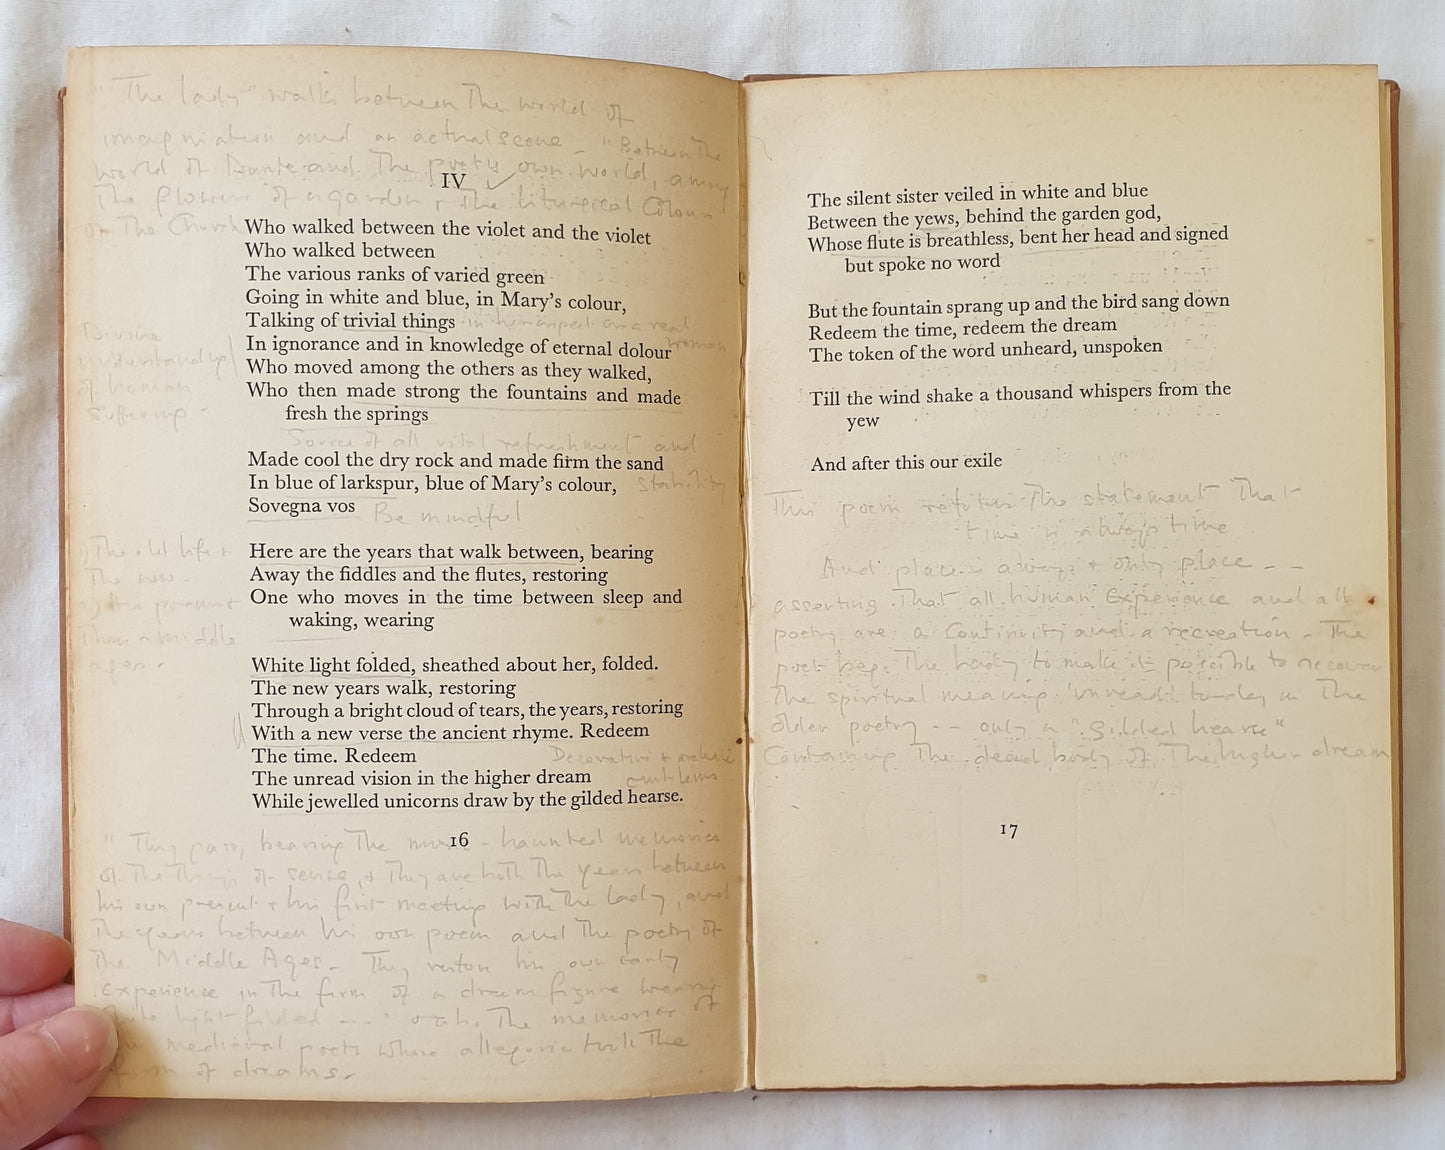 "The lady" walks between the world of
imagination and an actual scene - "Between the
world of Dante and the poet's own world, among
the flowers of a garden & the liturgical Colours
of The Church
IV
Who walked between the violet and the violet
Who walked between
The various ranks of varied green
Going in white and blue, in Mary's colour,
Talking of trivial things in her aspect as a real
woman
In ignorance and in knowledge of eternal dolour
Who moved among the others as they walked,
Who then made strong the fountains and made
fresh the springs
Divine
understanding
of human
suffering -
Source of all vital refreshment and
Made cool the dry rock and made firm the sand
In blue of larkspur, blue of Mary's colour, stability
Sovegna vos Be mindful
Here are the years that walk between, bearing
Away the fiddles and the flutes, restoring
One who moves in the time between sleep and
waking, wearing
The old life &
The new -
his present
Than middle
ages -
White light folded, sheathed about her, folded.
The new years walk, restoring
Through a bright cloud of tears, the years, restoring
With a new verse the ancient rhyme. Redeem
The time. Redeem Decorative &
The unread vision in the higher dream emblems
While jewelled unicorns draw by the gilded hearse.
16
"They pass, bearing the music-haunted memories
of the things of sense, & They are both the years between
his own present & his first meeting with the lady, and
the years between his own poem and the poetry of
the Middle Ages - They restore his own early
experience in the form of a dream figure wearing
white light folded --- " the memories of
medieval poets whose allegories took the
form of dreams -
The silent sister veiled in white and blue
Between the yews, behind the garden god,
Whose flute is breathless, bent her head and signed
but spoke no word
But the fountain sprang up and the bird sang down
Redeem the time, redeem the dream
The token of the word unheard, unspoken
Till the wind shake a thousand whispers from the
yew
And after this our exile
This poem refutes the statement that
time is always time
And place is always & only place --
asserting that all human Experience and all
poetry are a Continuity and a recreation - The
poet begs the lady to make it possible to recover
the spiritual meaning 'unread' today in the
older poetry -- only a "gilded hearse"
Containing the dead body of The higher dream
17